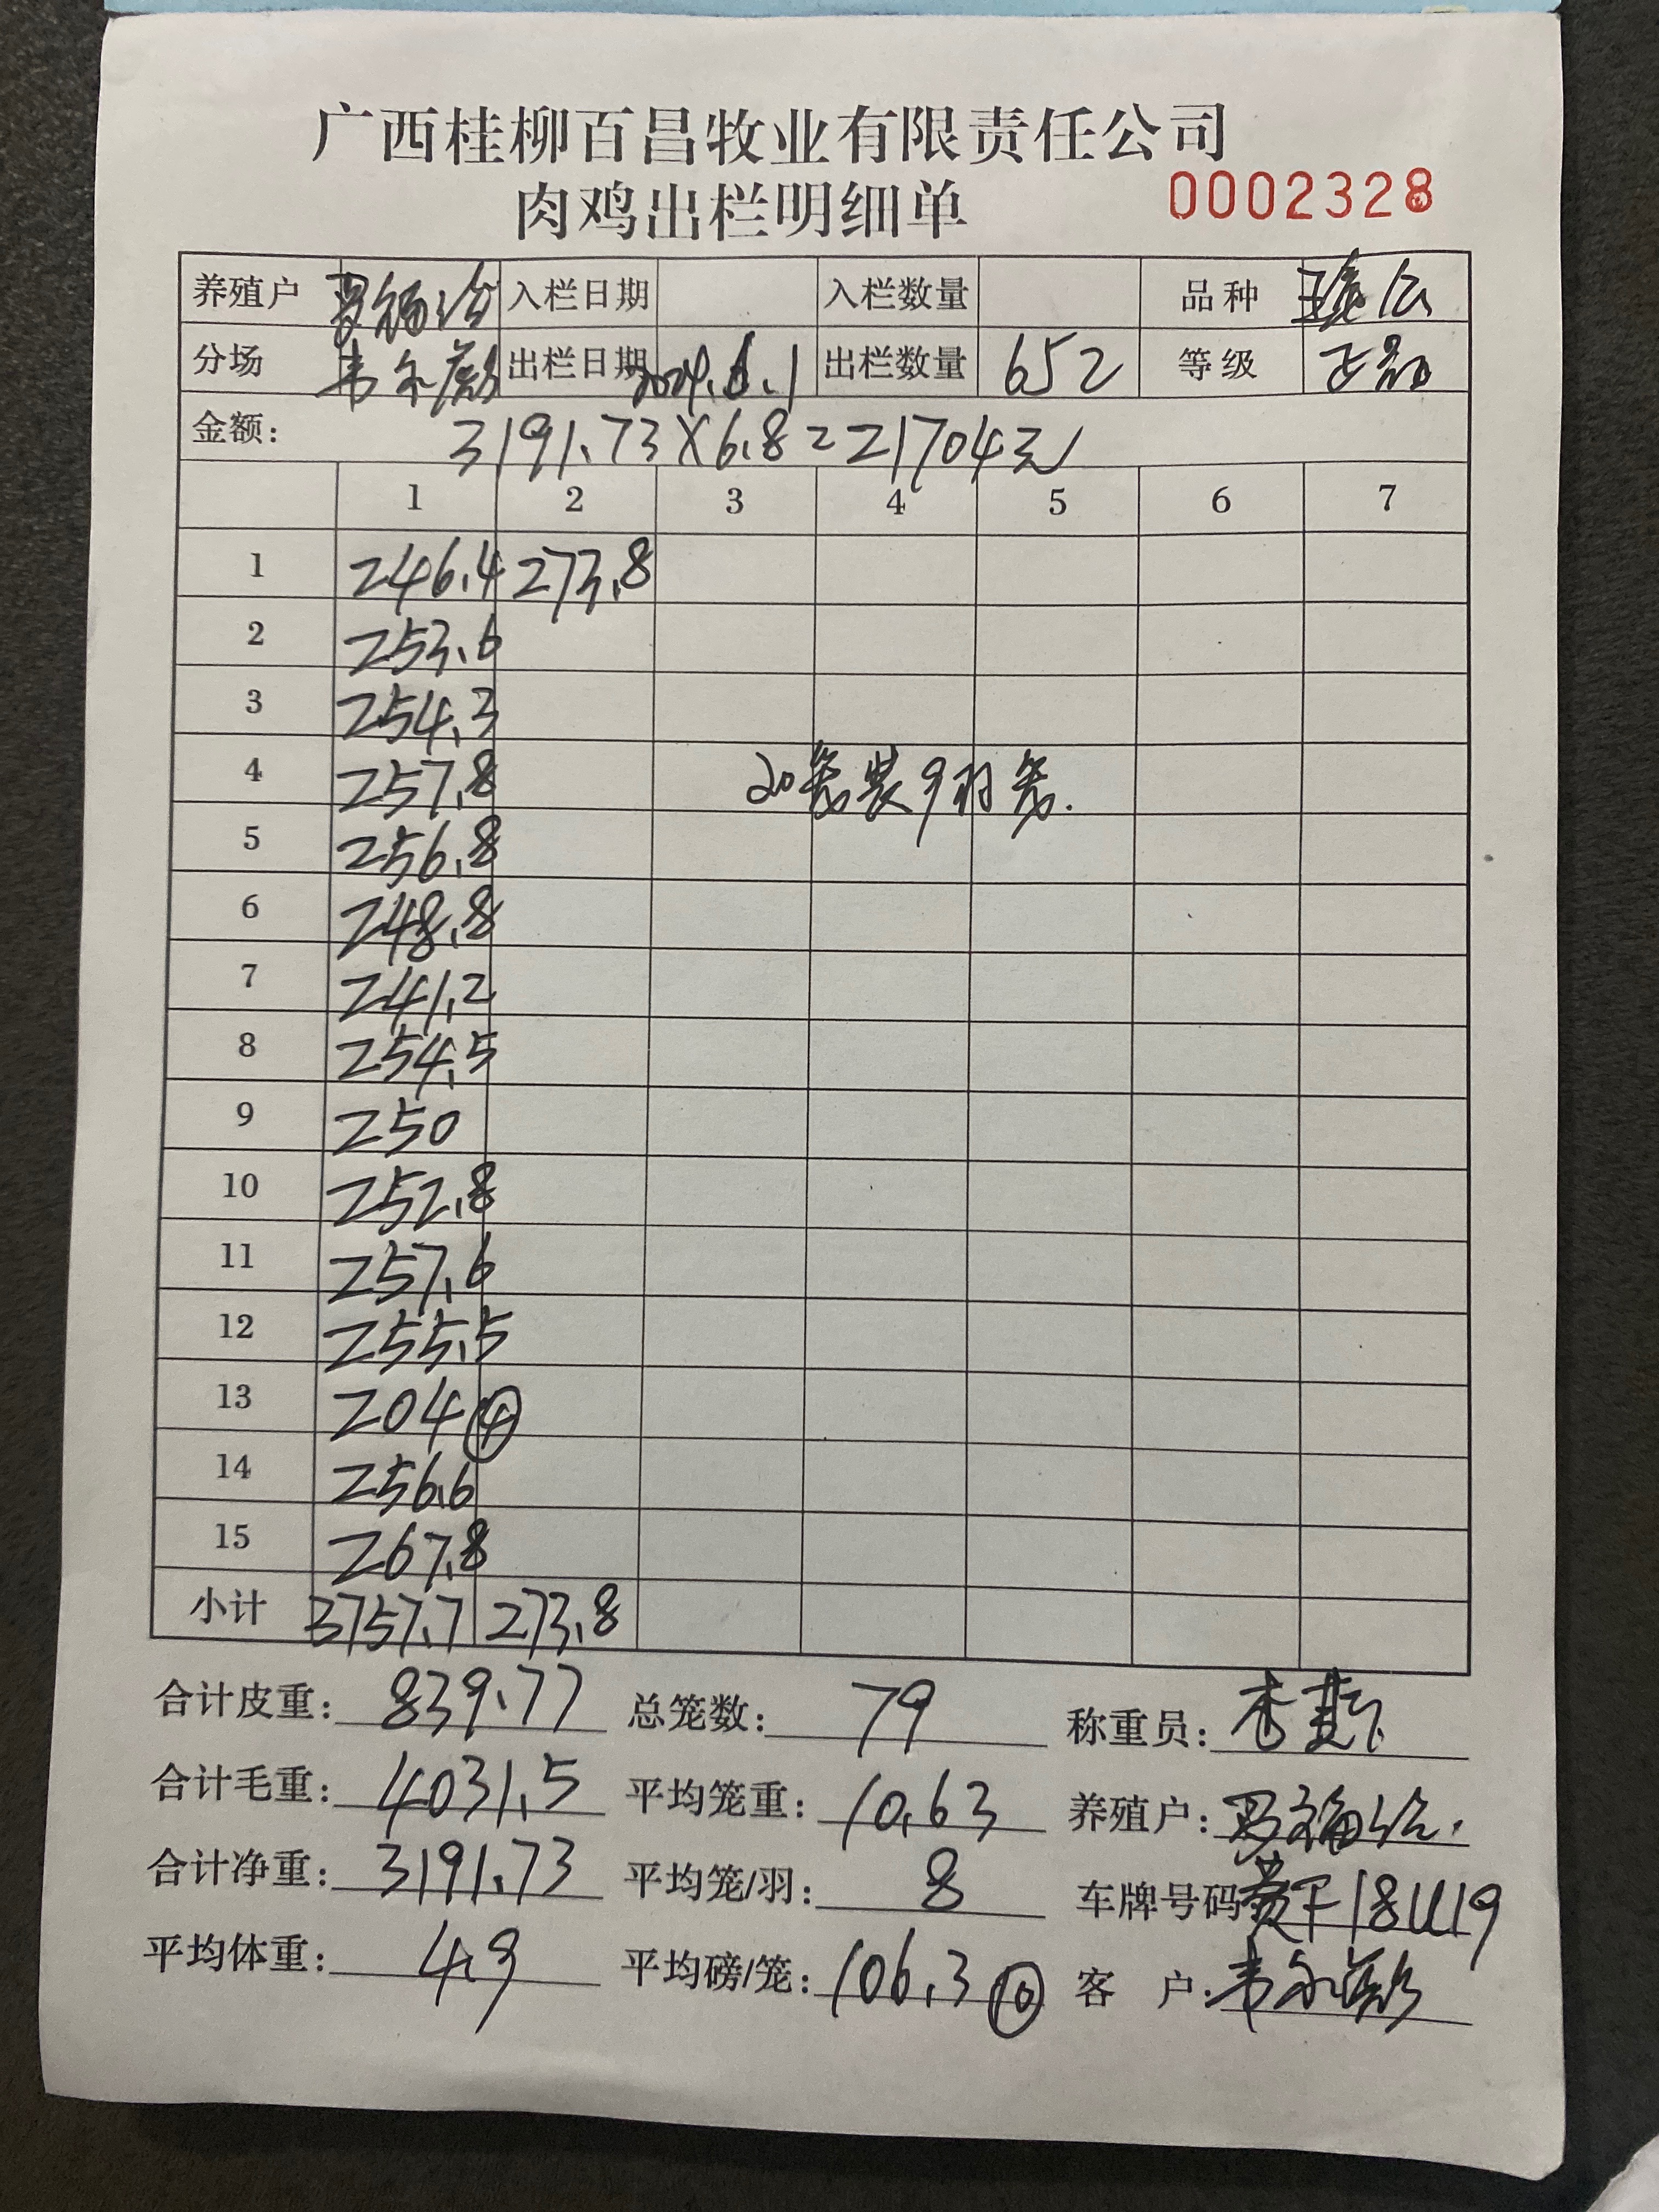 广西桂柳百昌牧业有限责任公司
肉鸡出栏明细单 0002328
养殖户 入栏日期 入栏数量 品种
分场 出栏日期 2024.6.1 出栏数量 652 等级 正
金额: 3191.73×6.8=21704元
1 2 3 4 5 6 7
1 246.4 273.8
2 253.6
3 254.3
4 257.8 20笼装9羽笼.
5 256.8
6 248.8
7 241.2
8 254.5
9 250
10 252.8
11 257.6
12 255.5
13 204 ④
14 256.6
15 267.8
小计 3757.7 273.8
合计皮重: 839.77 总笼数: 79 称重员: 李
合计毛重: 4031.5 平均笼重: 10.63 养殖户:
合计净重: 3191.73 平均笼/羽: 8 车牌号码
平均体重: 4.9 平均磅/笼: 106.3 ⑩ 客 户: 韦